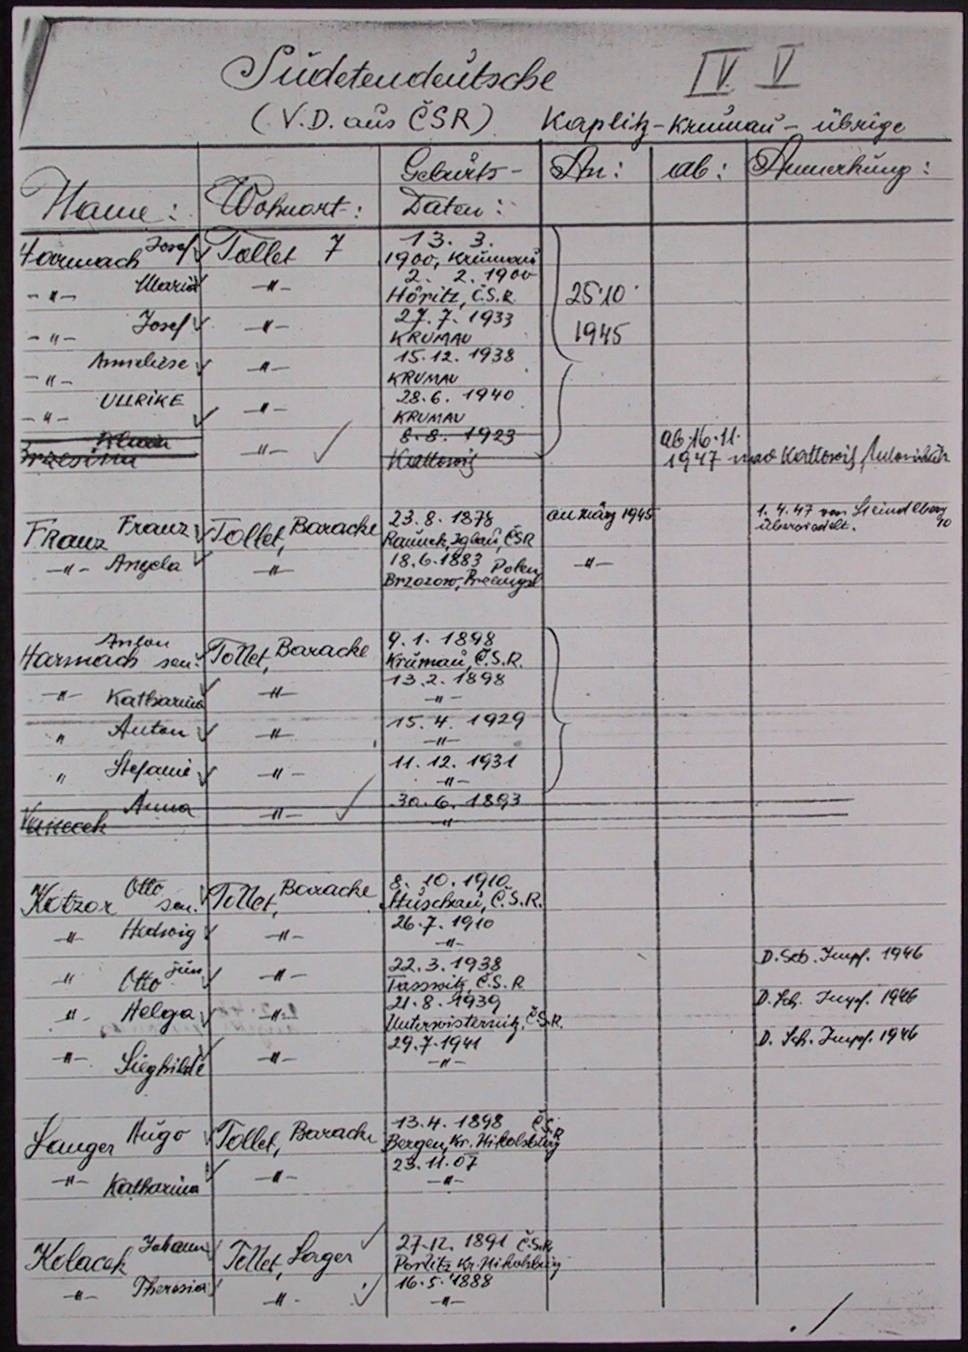 Südetendeütsche IV. V
(V.D. aüs ČSR) Kaplitz-Krümaü - übrige
Name: Wohnort: Gebürts- An: ab: Anmerküng:
Daten:
Josef Tollet 7 13. 3.
Harmach 1900, Krümaü
-"- Maria -"- 2. 2. 1900
Höritz, Č.S.R. 25.10.
-"- Josef -"- 27.7.1933 1945
KRUMAU
-"- Anneliese -"- 15.12.1938
KRUMAU
-"- ULLRIKE -"- 28.6.1940
KRUMAU
-"- 8.8.1923 ab 16.11.
Kattowitz 1947 nach Kattowitz
Franz Franz Tollet, Baracke 23.8.1878 an März 1945 1.4.47 von Steindlberg 40
Iglaü, ČSR übersiedelt.
-"- Angela -"- 18.6.1883 Polen -"-
Brzozow,
Anton 9.1.1898
Harmach sen. Tollet, Baracke Krümaü, Č.S.R.
-"- Katharina -"- 13.2.1898
-"-
" Anton -"- 15.4.1929
-"-
" Stefanie -"- 11.12.1931
-"-
Anna -"- 30.6.1893
-"-
Otto 8.10.1910
Kotzor sen. Tollet, Baracke Č.S.R.
-"- Hedwig -"- 26.7.1910
-"-
" Otto jün -"- 22.3.1938 D. Sch. Impf. 1946
Tasswitz, Č.S.R
-"- Helga -"- 21.8.1939 D. Sch. Impf. 1946
Unterwisternitz, Č.S.R.
-"- Sieghilde -"- 29.7.1941 D. Sch. Impf. 1946
-"-
Langer Hügo Tollet, Baracke 13.4.1898 Č.S.R
Bergen, Kr. Nikolsbürg
-"- Katharina -"- 23.11.07
-"-
Kolacek Johann Tollet, Lager 27.12.1891 Č.S.R
Porlitz Kr. Nikolsbürg
-"- Theresia -"- 16.5.1888
-"-
./